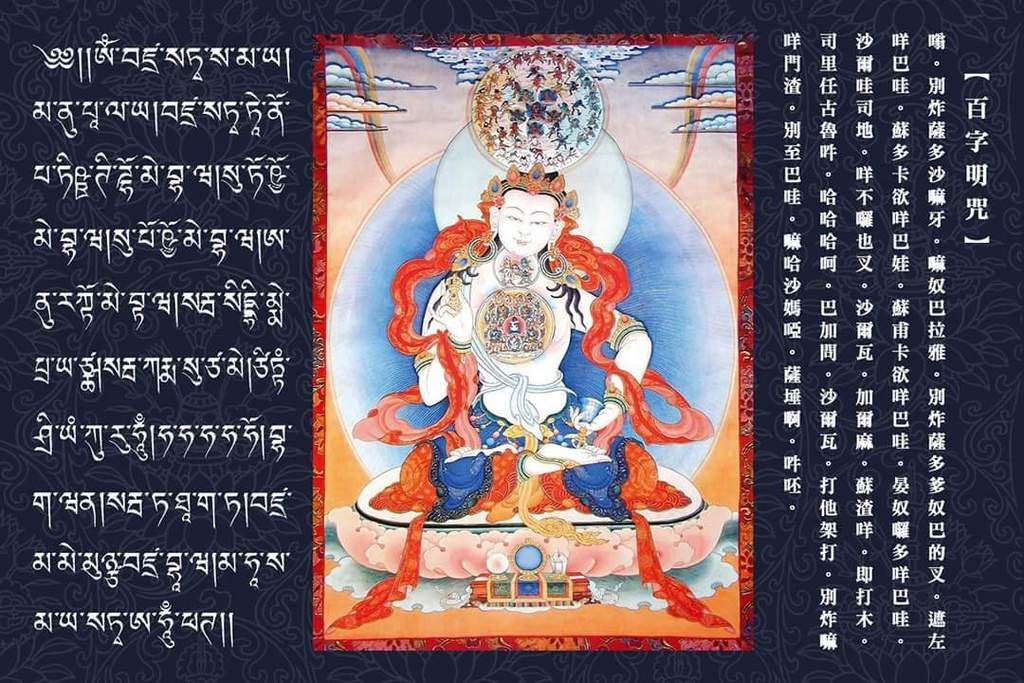 ༄༅།།ཨོཾ་བཛྲ་སཏྭ་ས་མ་ཡ།
མ་ནུ་པཱ་ལ་ཡ།བཛྲ་སཏྭ་ཏྭེ་ནོ་
པ་ཏིཥྛ་ཌོ་མེ་བྷ་ཝ།སུ་ཏོ་ཥྱོ་
མེ་བྷ་ཝ།སུ་པོ་ཥྱོ་མེ་བྷ་ཝ།ཨ་
ནུ་རཀྟོ་མེ་བྷ་ཝ།སརྦ་སིདྡྷི་མྨེ་
པྲ་ཡ་ཙྪ།སརྦ་ཀརྨ་སུ་ཙ་མེ།ཙིཏྟཾ་
ཤྲི་ཡཾ་ཀུ་རུ་ཧཱུྃ།ཧ་ཧ་ཧ་ཧ་ཧོ།བྷ་
ག་ཝན།སརྦ་ཏ་ཐཱ་ག་ཏ།བཛྲ་
མ་མེ་མུཉྩ་བཛྲ་བྷཱ་ཝ།མ་ཧཱ་ས་
མ་ཡ་སཏྭ་ཨ་ཧཱུྃ་ཕཊ།།
【百字明咒】
嗡。別炸薩多沙嘛牙。嘛奴巴拉雅。別炸薩多爹奴巴的叉。遮左
咩巴哇。蘇多卡欲咩巴娃。蘇甫卡欲咩巴哇。晏奴囉多咩巴哇。
沙爾哇司地。咩不囉也叉。沙爾瓦。加爾麻。蘇渣咩。即打木。
司里任古魯吽。哈哈哈哈呵。巴加問。沙爾瓦。打他架打。別炸嘛
咩門渣。別至巴哇。嘛哈沙媽啞。薩埵啊。吽呸。